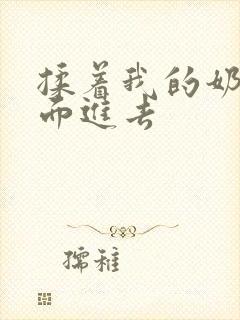 揉着我的奶
而进去
孺稚